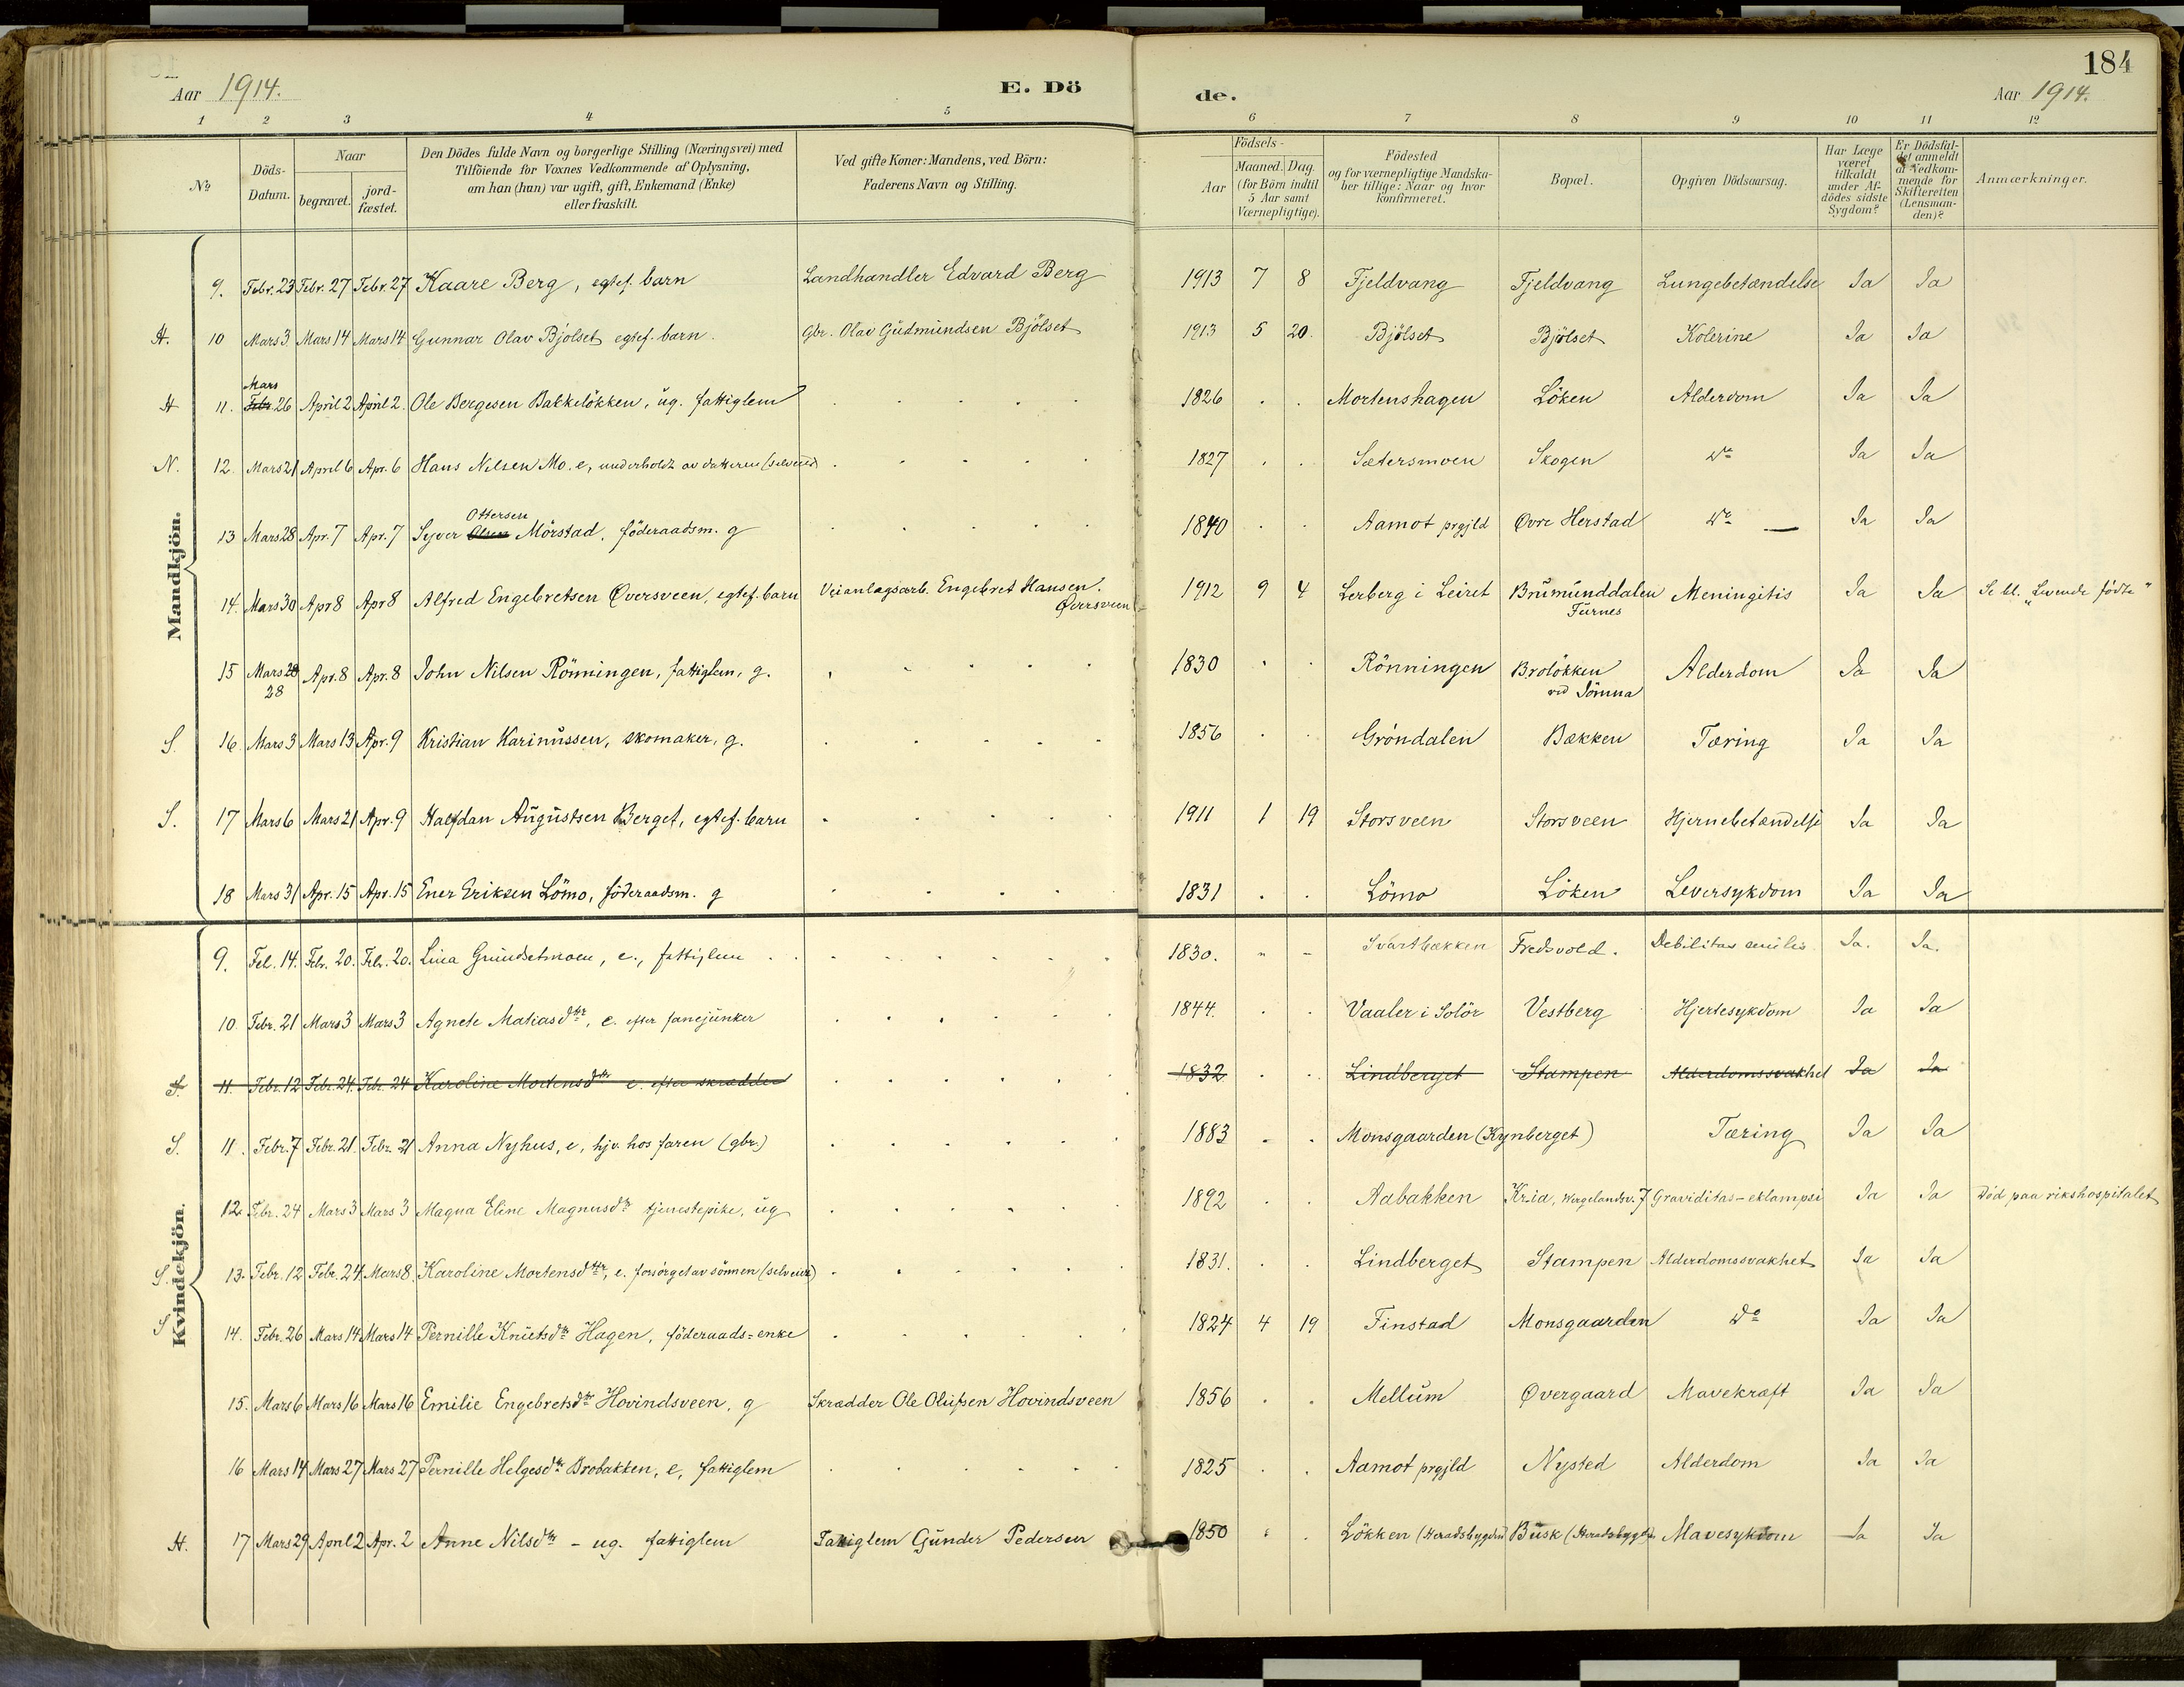 184
Aar 1914. E. Dö de. Aar 1914.
1 2 3 4 5 6 7 8 9 10 11 12
No. Döds-Datum. Naar begravet. jordfæstet. Den Dödes fulde Navn og borgerlige Stilling (Næringsvei) med Tilföiende for Voxnes Vedkommende af Oplysning, om han (hun) var ugift, gift, Enkemand (Enke) eller fraskilt. Ved gifte Koner: Mandens, ved Börn: Faderens Navn og Stilling. Födsels- Aar Maaned. Dag. (for Börn indtil 5 Aar samt Værnepligtige). Födested og for værnepligtige Mandskaber tillige: Naar og hvor konfirmeret. Bopæl. Opgiven Dödsaarsag. Har Læge været tilkaldt under Afdödes sidste Sygdom? Er Dödsfaldet anmeldt af Vedkommende for Skifteretten (Lensmanden)? Anmærkninger.
Mandkjön.
9. Febr. 23 Febr. 27 Febr. 27 Kaare Berg, egtef. barn Landhandler Edvard Berg 1913 7 8 Fjeldvang Fjeldvang Lungebetændelse Ja Ja
H. 10 Mars 3 Mars 14 Mars 14 Gunnar Olav Bjölset egtef. barn. Gbr. Olav Gudmundsen Bjölset 1913 5 20. Bjölset Bjölset Kolerine Ja Ja
Mars
H 11. Febr. 26 April 2 April 2. Ole Bergesen Bakkelökken, ug. fattiglem 1826 Mortenshagen Löken Alderdom Ja Ja
N. 12. Mars 21 April 6 Apr. 6 Hans Nilsen Mo. e, underholdt av datteren (selveier) 1827 Sætersmoen Skogen do Ja Ja
Ottersen
13 Mars 28 Apr. 7 Apr. 7 Syver Olsen Mörstad, föderaadsm. g 1840 Aamot prgjld Øvre Herstad do — Ja Ja
14. Mars 30 Apr 8 Apr 8 Alfred Engebretsen Øversveen, egtef. barn Veianlagsarb. Engebret Hansen Øversveen 1912 9 4 Lerberg i Leiret Brumunddalen Furnes Meningitis Ja Ja Se bl. "Levende födte"
15 Mars 28 28 Apr. 8 Apr. 8 John Nilsen Rönningen, fattiglem, g. 1830 Rönningen Brolökken ved Jömna Alderdom Ja Ja
S. 16. Mars 3 Mars 13 Apr. 9 Kristian Karinussen, skomaker, g. 1856 Gröndalen Bækken Tæring Ja Ja
S. 17 Mars 6 Mars 21 Apr. 9 Halfdan Augustsen Berget, egtef. barn 1911 1 19 Storsveen Storsveen Hjernebetændelse Ja Ja
18 Mars 31 Apr. 15 Apr. 15 Ener Eriksen Lömo, föderaadsm. g 1831 Lömo Löken Leversykdom Ja Ja
Kvindekjön.
9. Feb. 14. Febr. 20. Febr. 20. Lina Grundsetmoen, e., fattiglem 1830. Svartbækken Fredsvold. Debilitas senilis Ja. Ja.
10. Febr. 21 Mars 3 Mars 3 Agnete Matiasdtr, e. efter fanejunker 1844. Vaaler i Solör Vestberg Hjertesykdom Ja Ja
S. 11. Febr. 12 Febr. 24. Febr. 24 Karoline Mortensdtr e. efter skrædder 1832 Lindberget Stampen Alderdomssvakhet Ja Ja
S. 11. Febr. 7 Febr. 21. Febr. 21 Anna Nyhus, e, hjv. hos faren (gbr.) 1883 Monsgaarden (Kynberget) Tæring Ja Ja
12. Febr. 24 Mars 3 Mars 3 Magna Eline Magnusdtr tjenestepike, ug 1892 Aabakken Kr.ia, Wergelandsv. 7 Graviditas-eklampsi Ja Ja Död paa rikshospitalet
S. 13. Febr. 12 Febr. 24 Mars 8. Karoline Mortensdtr, e. forsörget av sönnen (selveier) 1831. Lindberget Stampen Alderdomssvakhet Ja Ja
S 14. Febr. 26 Mars 14 Mars 14 Pernille Knutsdtr Hagen, föderaads-enke 1824 4 19 Finstad Monsgaarden do Ja Ja
15. Mars 6 Mars 16 Mars 16 Emilie Engebretsdtr Hovindsveen, g Skrædder Ole Olufsen Hovindsveen 1856 Mellum Øvergaard Mavekræft Ja Ja
16 Mars 14 Mars 27 Mars 27 Pernille Helgesdtr Brobakken, e, fattiglem 1825 Aamot prgjld Nysted Alderdom Ja Ja
H. 17 Mars 29 April 2 Apr. 2 Anne Nilsdtr - ug. fattiglem Fattiglem Gunder Pedersen 1850 Lökken (Heradsbygden) Busk (Heradsbygden) Mavesykdom Ja Ja